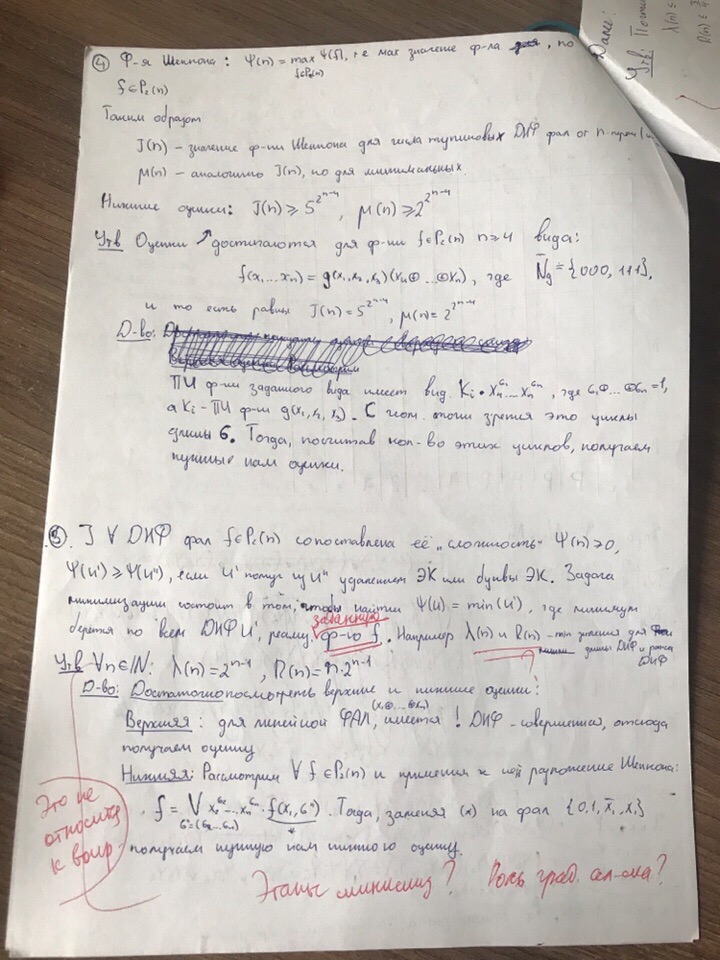 ④ Ф-я Шеннона: Ψ(n) = max Ψ(f), т.е max значение ф-ла, по
f∈P₂(n)
f∈P₂(n)
Таким образом
J(n) – значение ф-ии Шеннона для числа тупиковых ДНФ фал от n-перем
μ(n) – аналогично J(n), но для минимальных.
Нижние оценки: J(n) ≥ 5^{2^{n-4}}, μ(n) ≥ 2^{2^{n-4}}
Утв Оценки ↗ достигаются для ф-ии f∈P₂(n) n≥4 вида:
f(x₁...xₙ) = g(x₁,x₂,x₃)(x₄⊕...⊕xₙ), где N̄g = {000, 111},
и то есть равны J(n)=5^{2^{n-4}}, μ(n)=2^{2^{n-4}}
Д-во:
ПИ ф-ии заданного вида имеет вид Kᵢ · x₄^{σ₄}...xₙ^{σₙ}, где σ₄⊕...⊕σₙ=1,
а Kᵢ – ПИ ф-ии g(x₁,x₂,x₃). С геом. точки зрения это циклы
длины 6. Тогда, посчитав кол-во этих циклов, получаем
нужные нам оценки.
⑤ J ∀ ДНФ фал f∈P₂(n) сопоставлена её „сложность" Ψ(n)≥0,
Ψ(U') ≥ Ψ(U''), если U' получ из U'' удалением ЭК или буквы ЭК. Задача
минимизации состоит в том, чтобы найти Ψ(U) = min(U'), где минимум
заданную
берется по всем ДНФ U', реализ. ф-ю f. Например λ(n) и R(n) – min значения для
длины ДНФ и ранга
ДНФ
Утв ∀n∈ℕ: λ(n)=2^{n-1}, R(n)=n·2^{n-1}
Д-во: Достаточно посмотреть верхние и нижние оценки:
(x₁⊕...⊕xₙ)
Верхняя: для линейной ФАЛ, имеется ! ДНФ – совершенная, отсюда
получаем оценку
Нижняя: Рассмотрим ∀ f∈P₂(n) и применим к ней разложение Шеннона:
f = V x₂^{σ₂}...xₙ^{σₙ} · f(x₁, σ''). Тогда, заменяя (*) на фал {0,1,x̄₁,x₁}
σ''=(σ₂...σₙ) *
получаем нужную нам нижнюю оценку.
Это не
относится
к вопр.
Этапы минимиз? Роль град. ал-ма?
Далее:
Утв:
λ(n) ≤
R(n) ≤